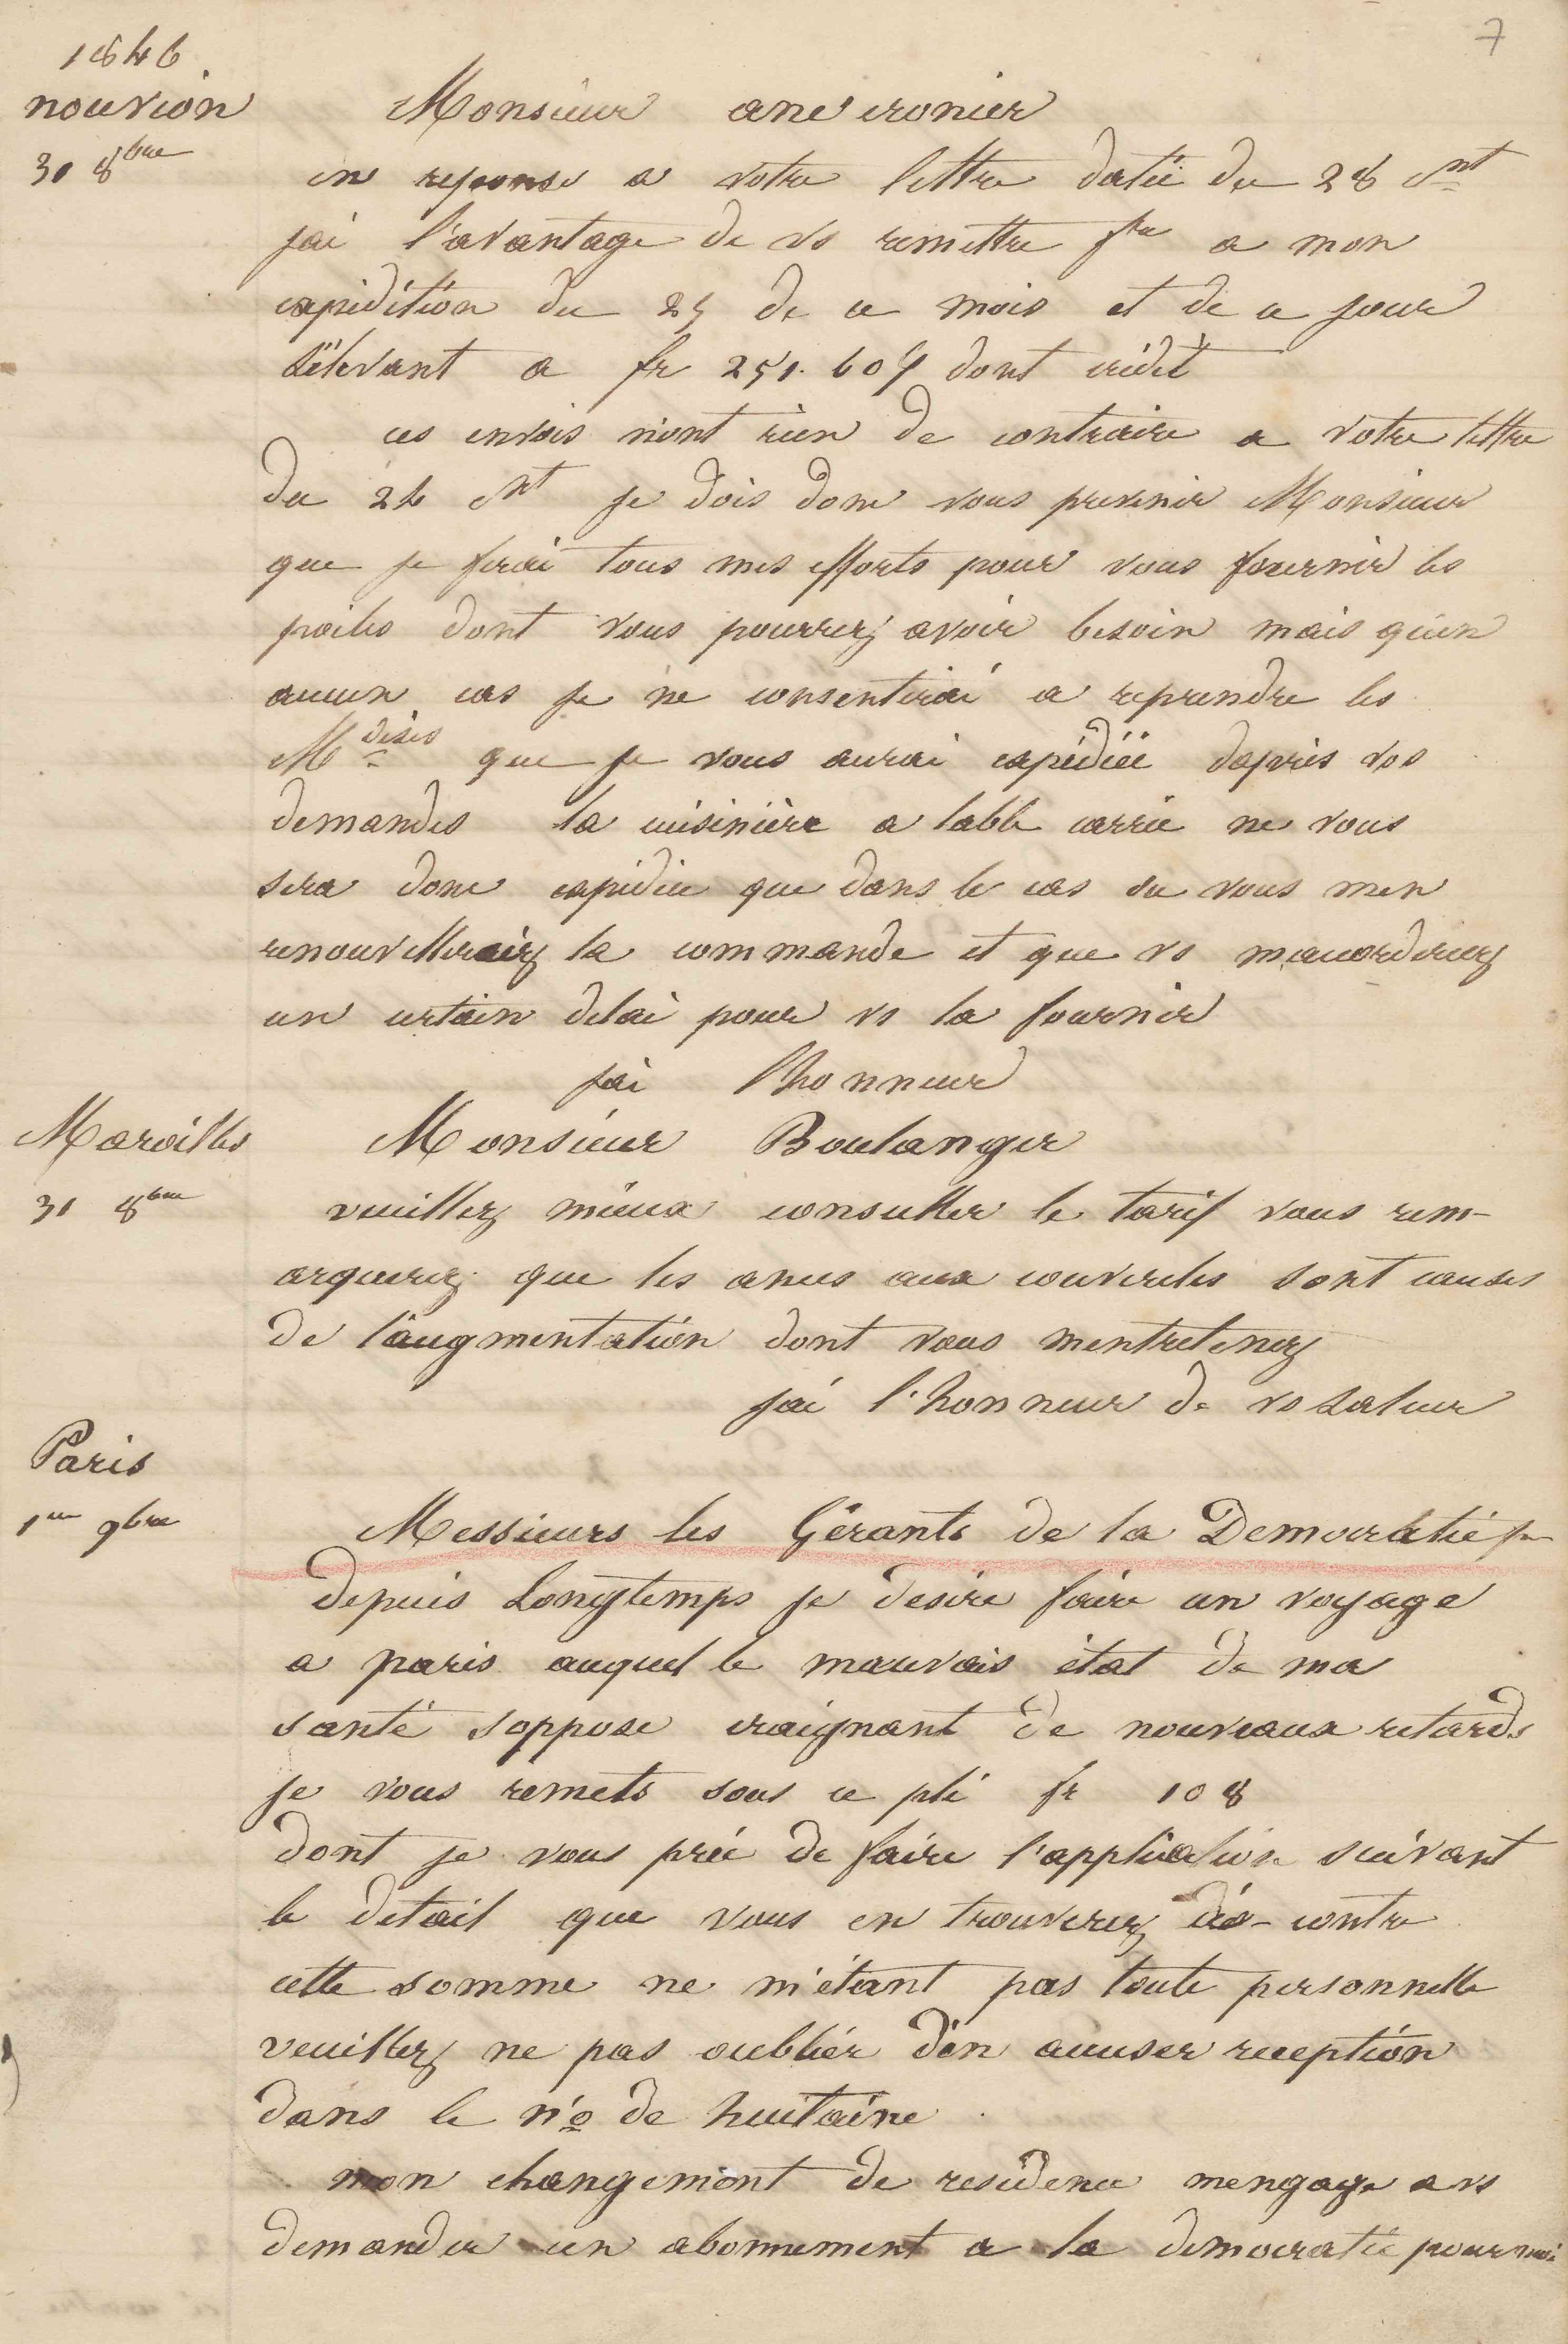 7
1846
nouvion
31 8bre
Monsieur ancronier
en reponse a votre lettre datée du 28 ct
jai l'avantage de vs remettre fre a mon
expédition du 25 de ce mois et de ce jour
sélevant a fr 251.605 dont crédit
ces envois n'ont rien de contraire a votre lettre
du 24 ct je dois donc vous prevenir Monsieur
que je ferai tous mes efforts pour vous fournir les
poëles dont vous pourrez avoir besoin mais qu'en
aucun cas je ne consentirai a reprendre les
Mdises que je vous aurai expédiée dapres vos
demandes la cuisinière a table carrée ne vous
sera donc expédiée que dans le cas ou vous men
renouvelleraiez la commande et que vs maccorderiez
un certain delai pour vs la fournir
jai lhonneur
Maroilles
31 8bre
Monsieur Boulanger
veuillez mieux consulter le tarif vous rem-
arquerez que les anses aux couvercles sont causes
de l'augmentation dont vous mentretenez
jai l'honneur de vs saluer
Paris
1er 9bre
Messieurs les Gérants de la Democratie pque
depuis Longtemps je desire faire un voyage
a paris auquel le mauvais état de ma
santé soppose craignant de nouveaux retards
je vous remets sous ce pli fr 108
dont je vous prie de faire l'application suivant
le detail que vous en trouverez ci-contre
cette somme ne m'étant pas toute personnelle
veuillez ne pas oublier d'en accuser reception
dans le no de huitaine
mon changement de residence mengage a vs
demander un abonnement a la democratie pour moi